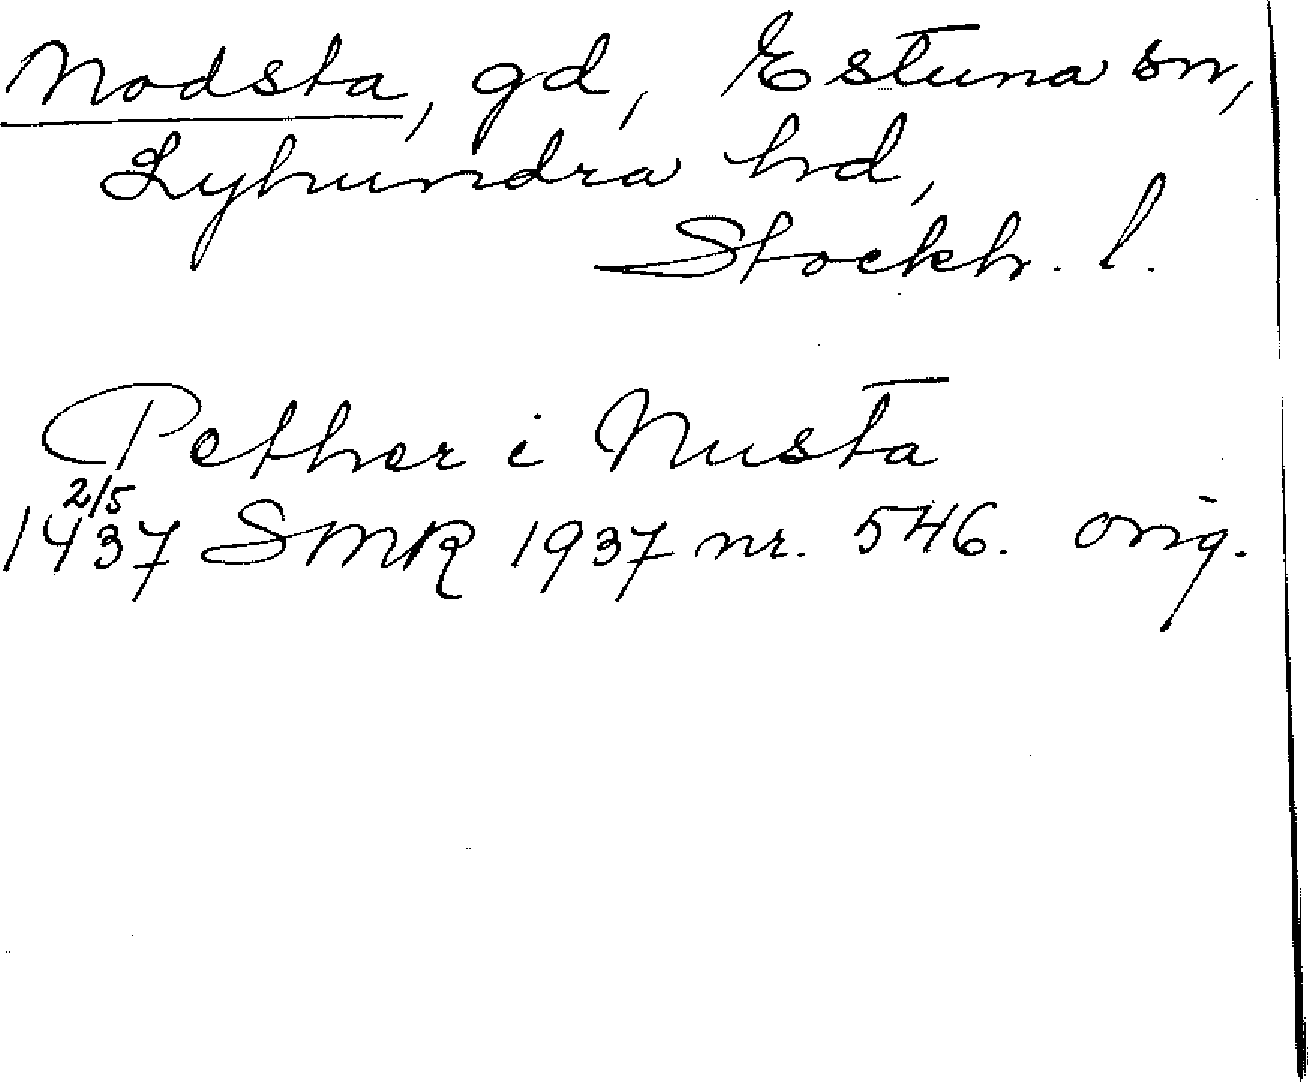 Nodsta, gd, Estuna sn,
Lyhundra hd,
Stockh. l.
Pether i Nusta
2/5
1437 SMR 1937 nr. 546. orig.